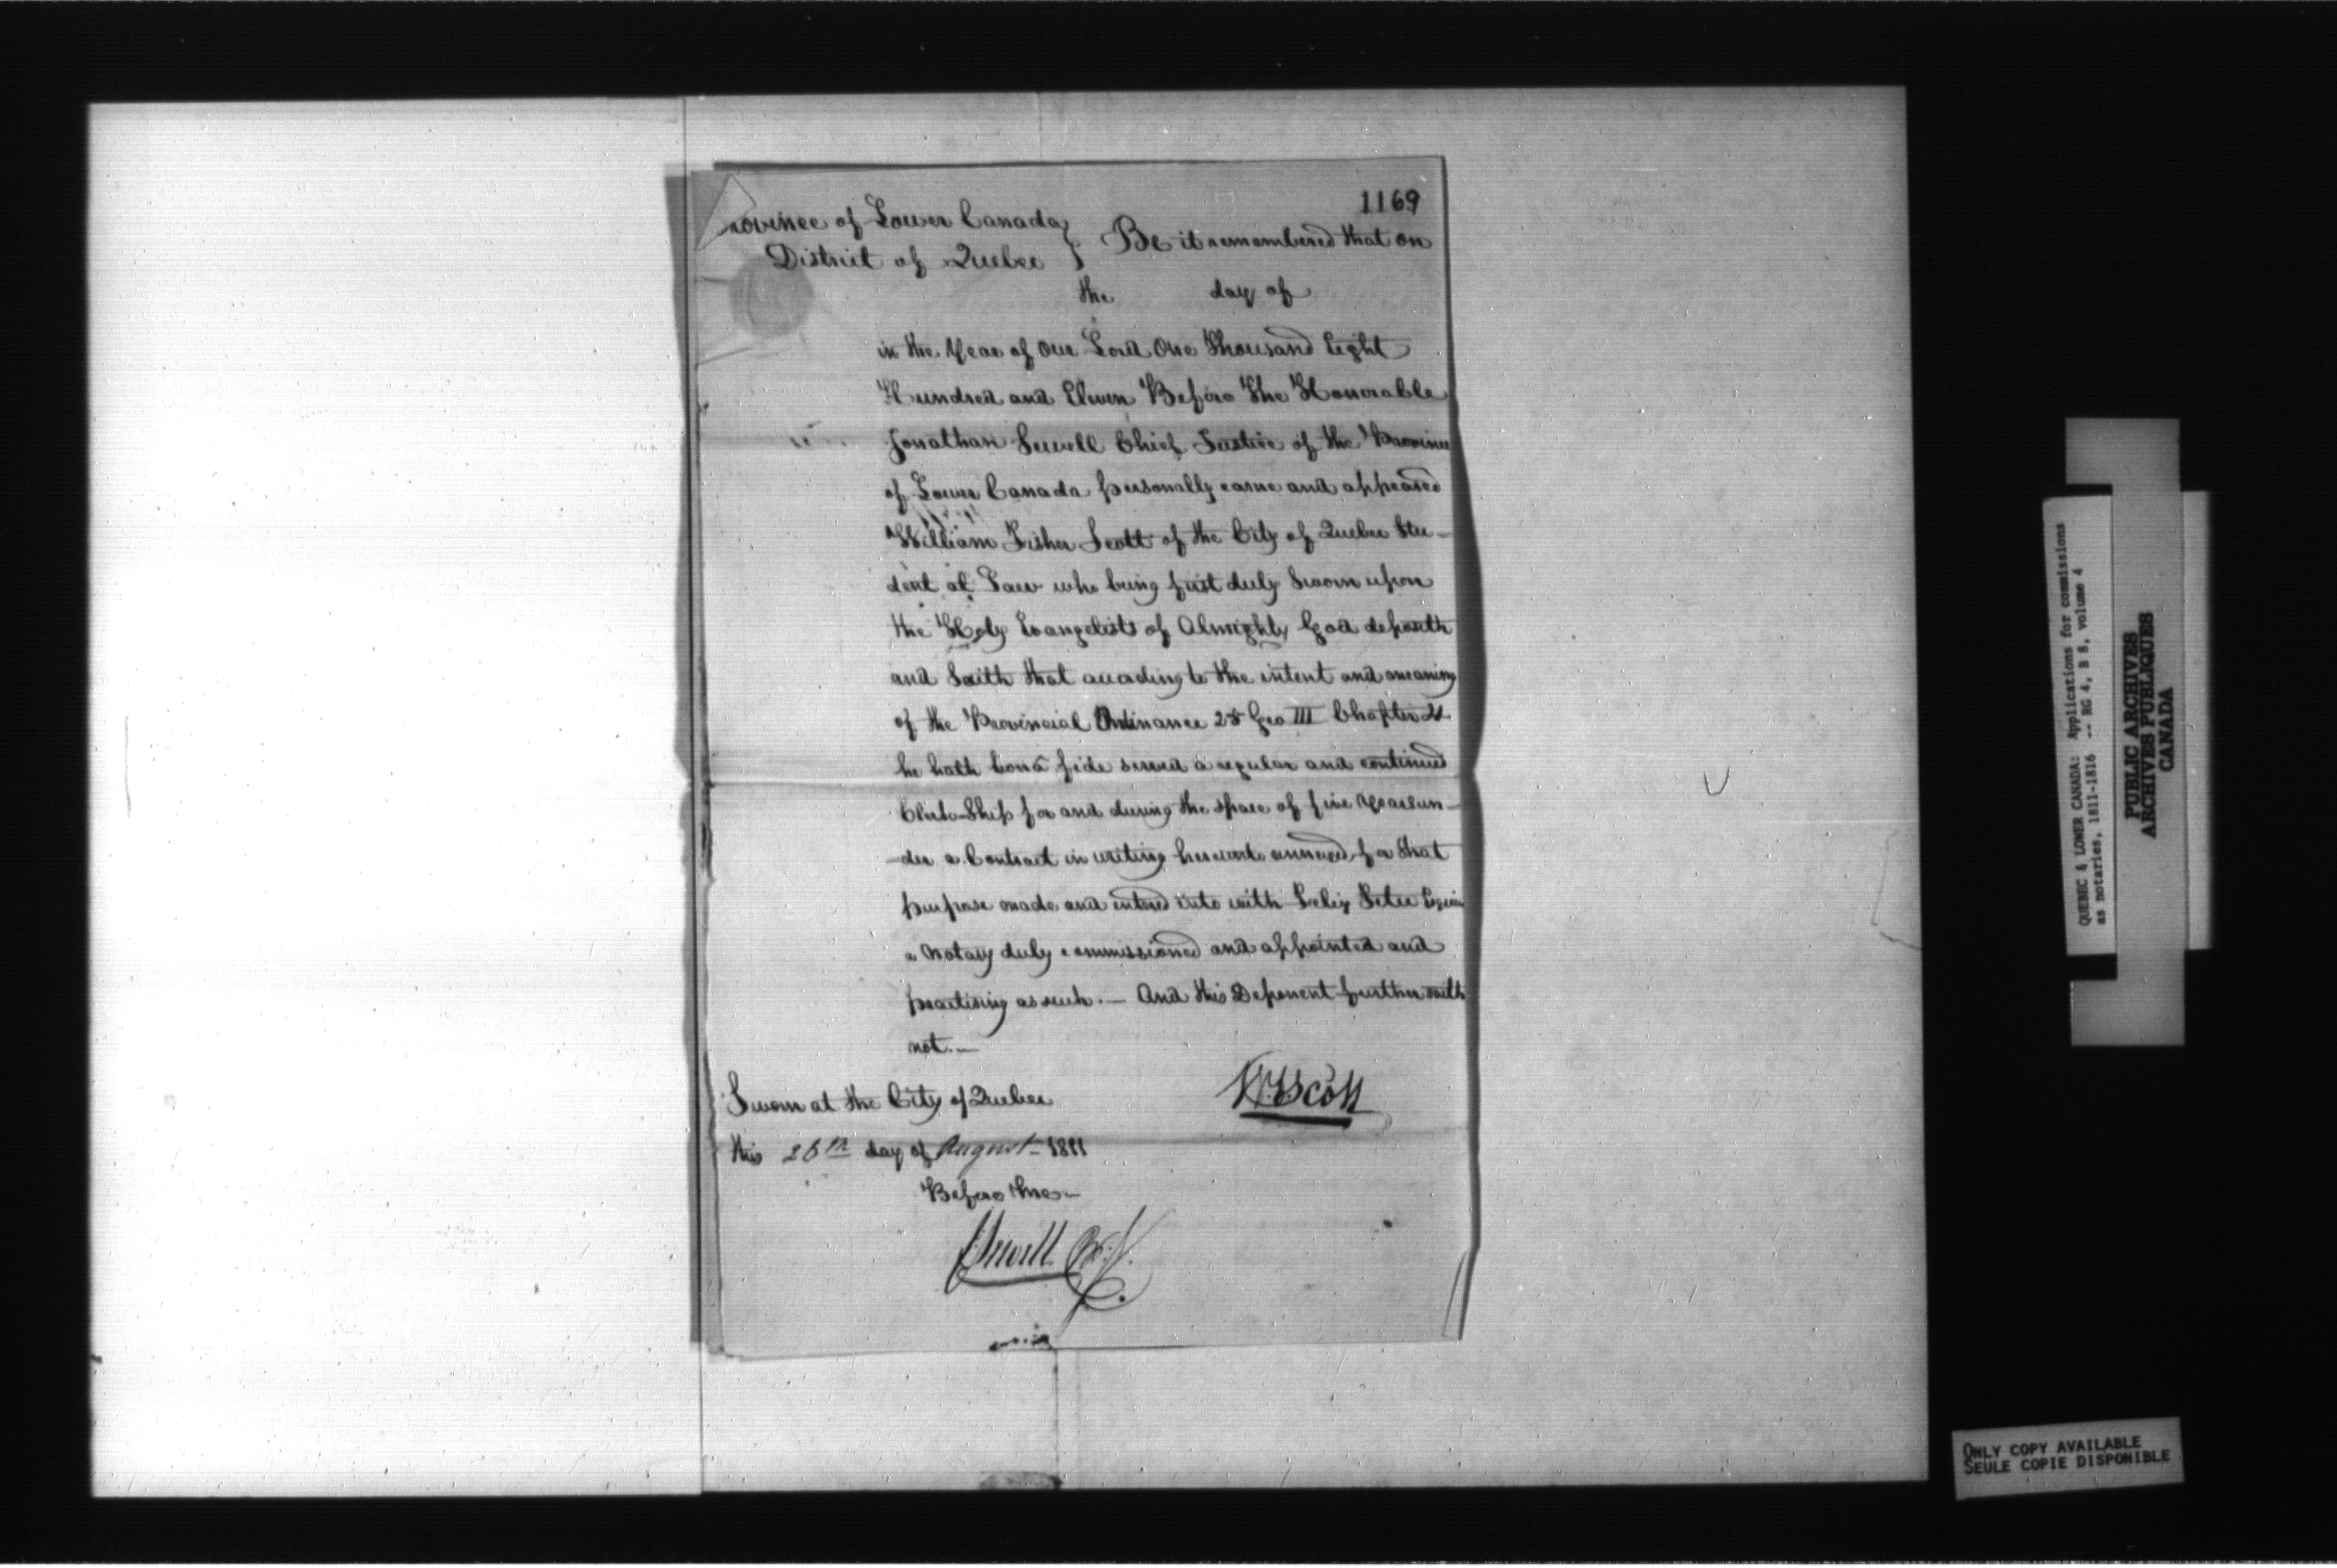 1169
Province of Lower Canada } Be it remembered that on
District of Quebec
the day of
in the Year of Our Lord One Thousand Eight
Hundred and Eleven Before The Honorable
Jonathan Sewell Chief Justice of the Province
of Lower Canada personally came and appeared
William Fisher Scott of the City of Quebec Stu-
dent at Law who being first duly Sworn upon
the Holy Evangelists of Almighty God deposeth
and Saith that according to the intent and meaning
of the Provincial Ordinance 25 Geo III Chapter 4
he hath bonâ fide served a regular and continued
Clerk-Ship for and during the space of five Years un-
-der a Contract in writing hereunto annexed, for that
purpose made and entered into with Felix Tetu Esquire
a Notary duly commissioned and appointed and
practising as such. — And this Deponent further saith
not. —
WFScott
Sworn at the City of Quebec
this 26th day of August - 1811
Before Me —
J Sewell Ch: J.
QUEBEC & LOWER CANADA: Applications for commissions
as notaries, 1811-1816 -- RG 4, B 8, volume 4
PUBLIC ARCHIVES
ARCHIVES PUBLIQUES
CANADA
ONLY COPY AVAILABLE
SEULE COPIE DISPONIBLE